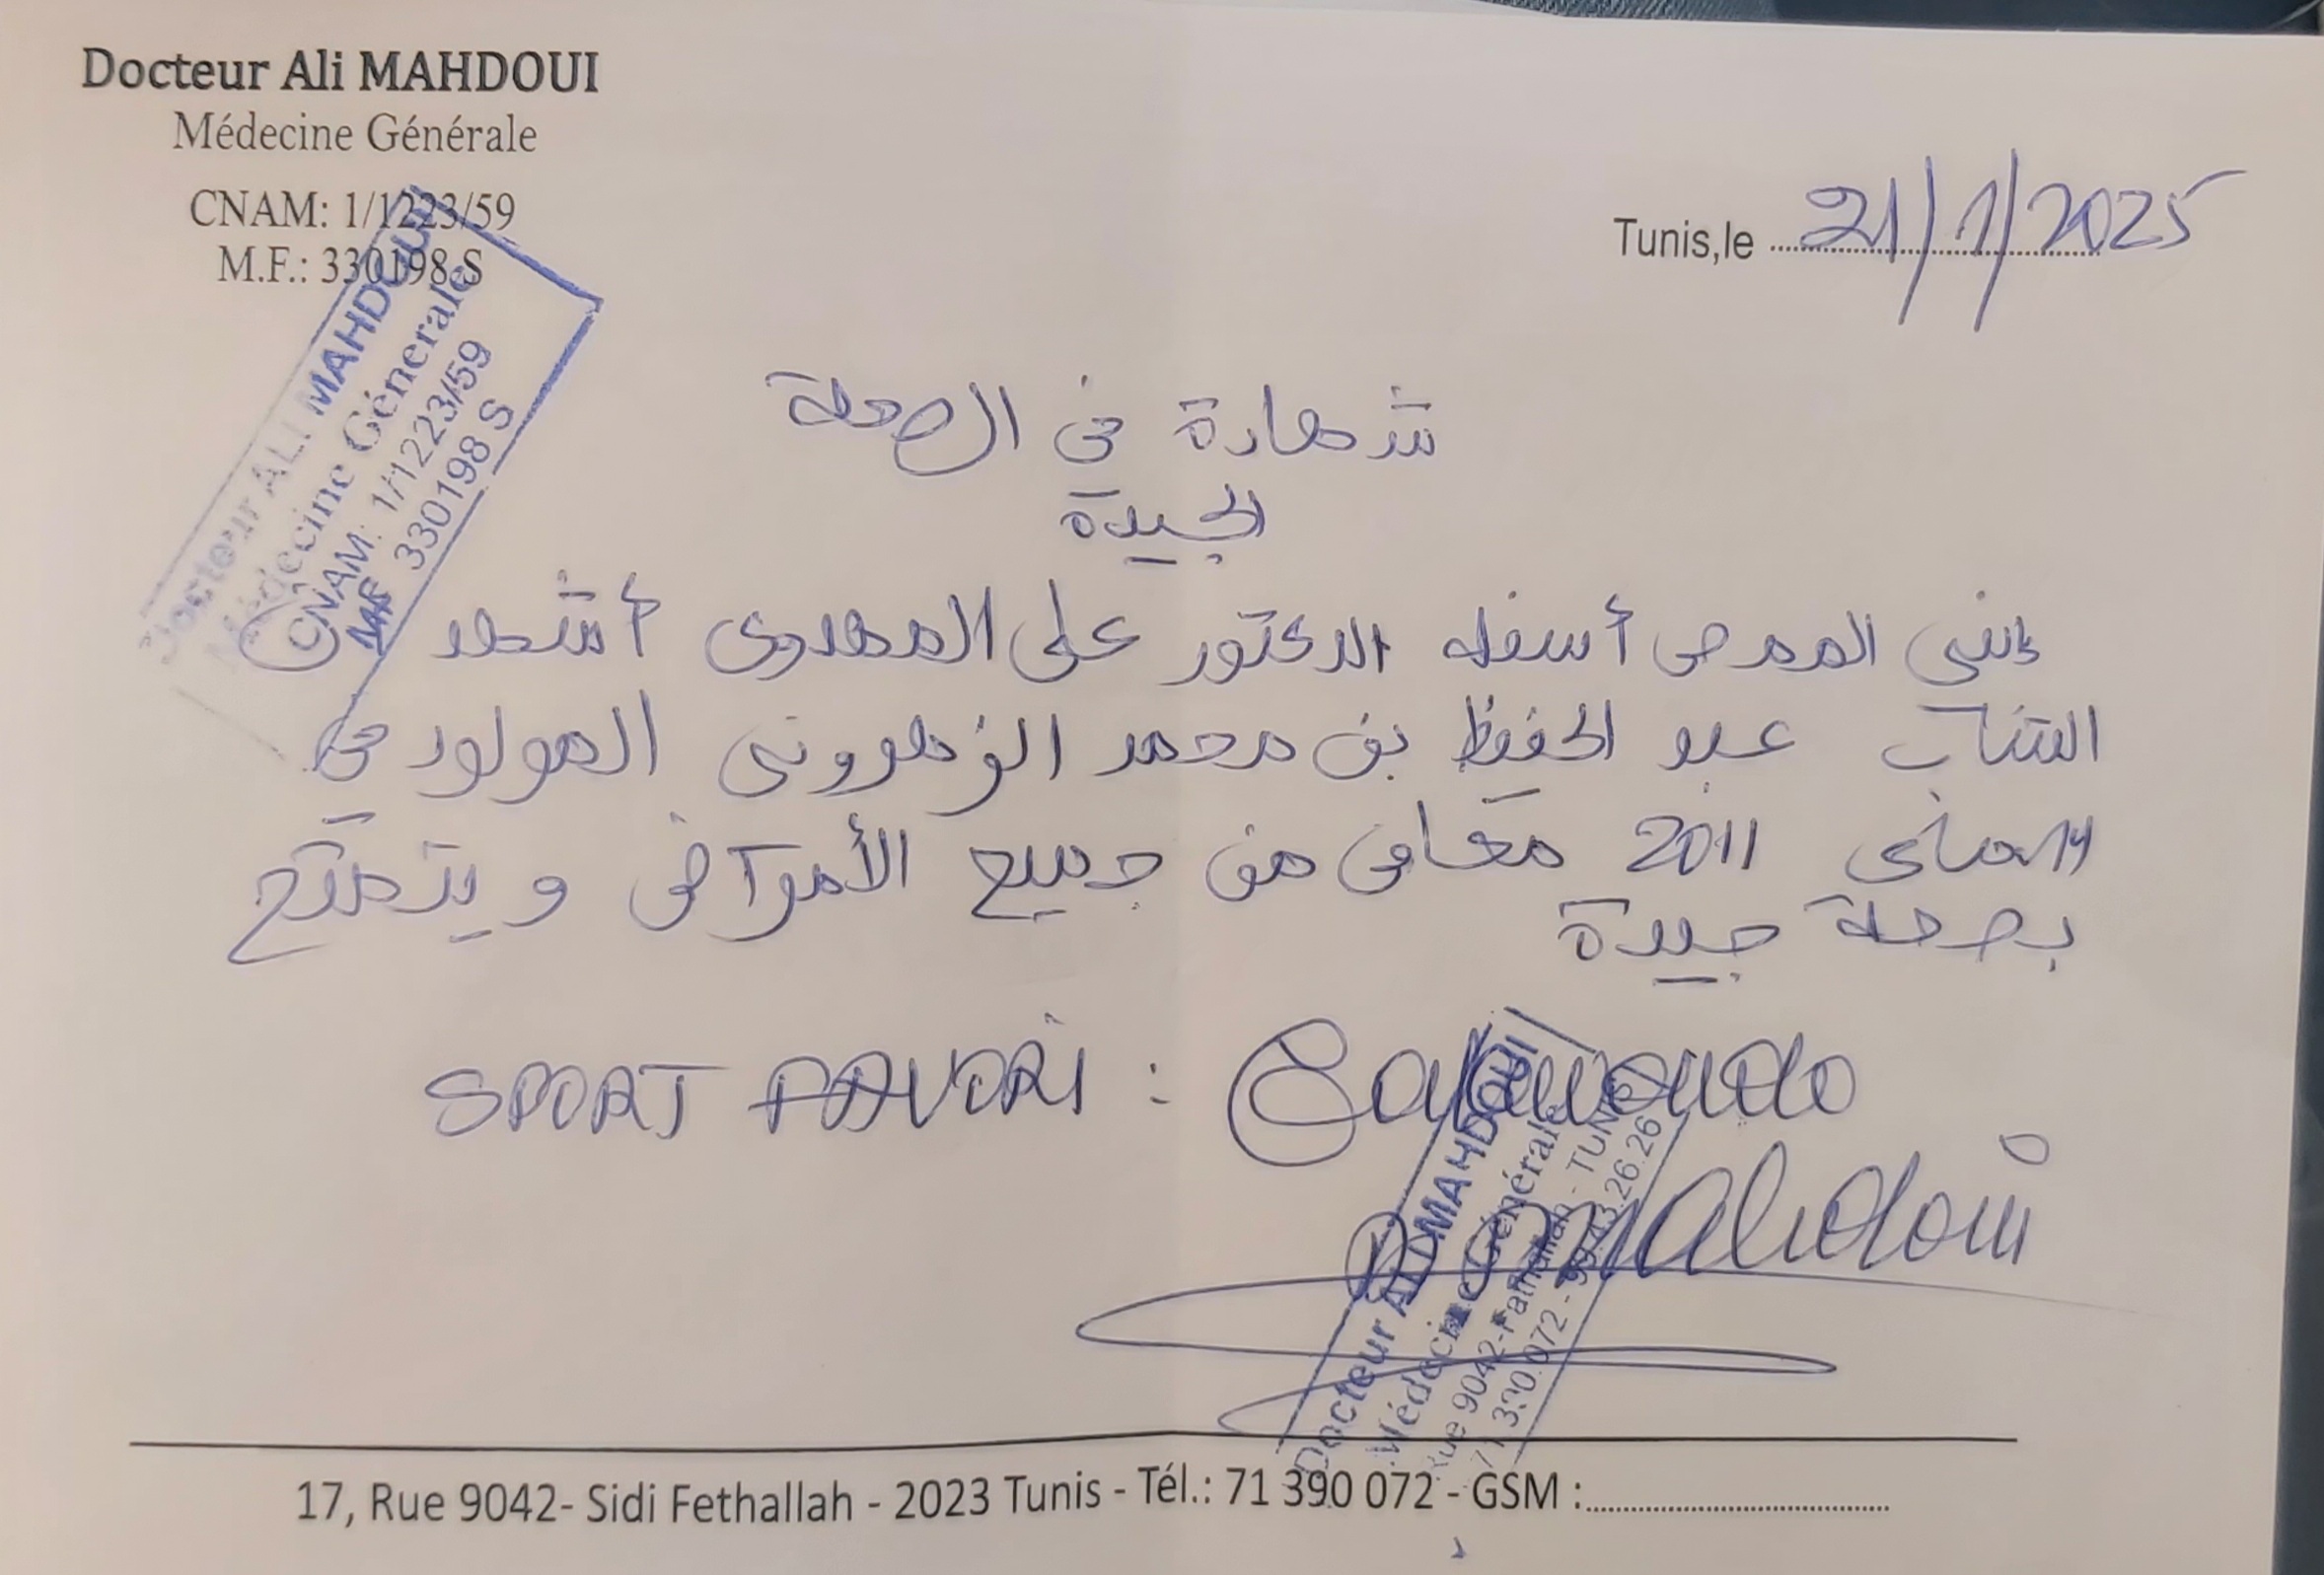 Docteur Ali MAHDOUI
Médecine Générale
CNAM: 1/1223/59
M.F.: 330198 S
Tunis,le 21/1/2025
Docteur ALI MAHDOUI
Médecine Générale
CNAM: 1/1223/59
330198 S
شهادة في الصحة
الجيدة
إنني الممضي أسفله الدكتور علي المهدوي أشهد
الشاب عبد الحفيظ بن محمد الزهروني المولود في
ماي 2011 معافى من جميع الأمراض و يتمتع
بصحة جيدة
SPORT FAVORI :
Dr Mahdoui
Docteur ALI MAHDOUI
Médecine Générale
Rue 9042-Fathallah - TUNIS
71 390 072 - 99.43.26.26
17, Rue 9042- Sidi Fethallah - 2023 Tunis - Tél.: 71 390 072 - GSM :